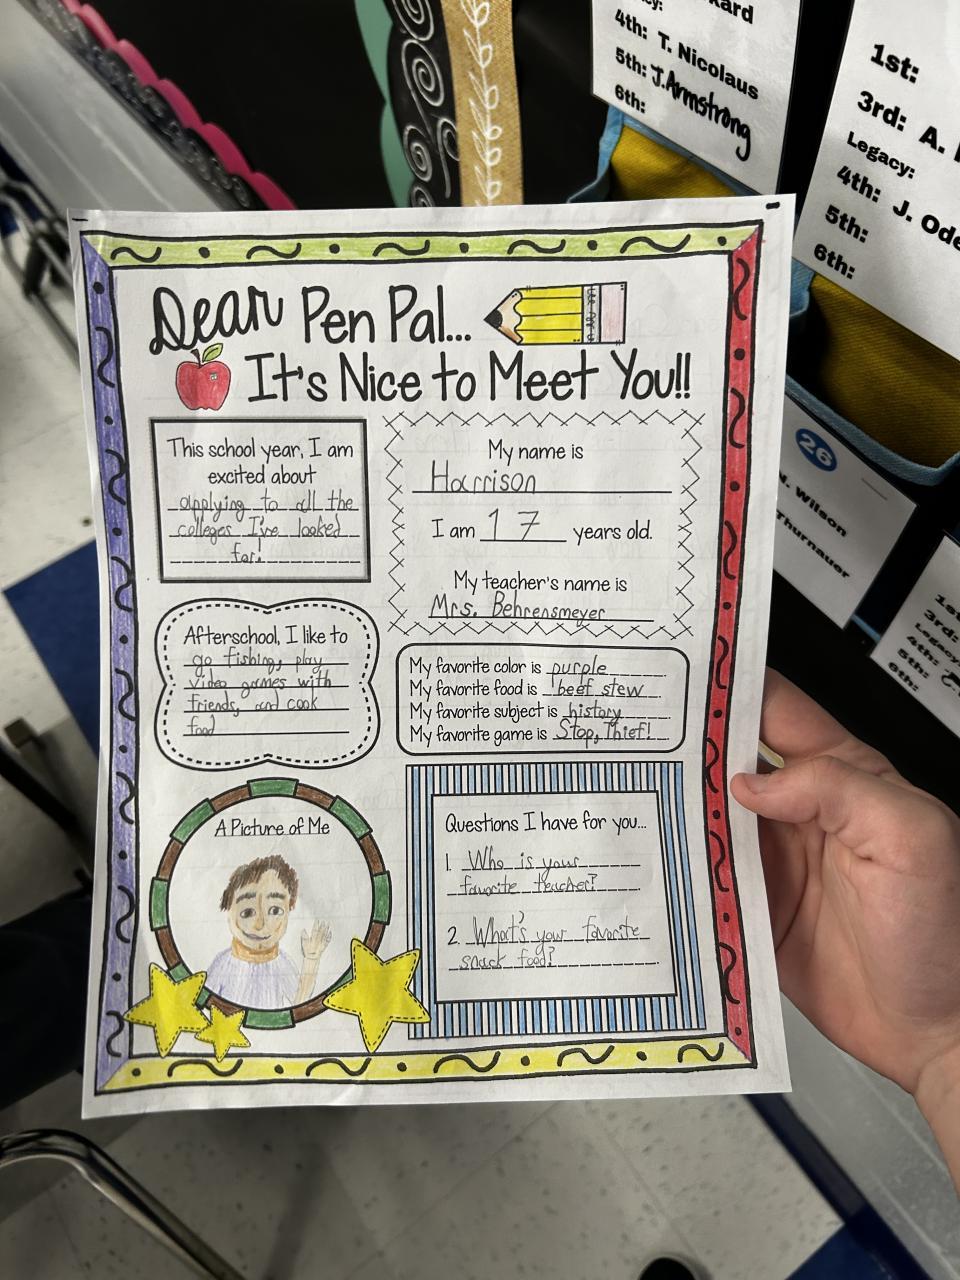 ard
cy:
4th: T. Nicolaus
5th: J. Armstrong
6th:
1st:
3rd: A.
Legacy:
4th: J. Ode
5th:
6th:
26
N. Wilson
Thurnauer
1st:
3rd:
Legacy:
4th:
5th:
6th:
Dear Pen Pal...
It's Nice to Meet You!!
This school year, I am
excited about
applying to all the
colleges I've looked
for!
My name is
Harrison
I am 17 years old.
My teacher's name is
Mrs. Behrensmeyer
Afterschool, I like to
go fishing, play
video games with
friends, and cook
food
My favorite color is purple
My favorite food is beef stew
My favorite subject is history
My favorite game is Stop, Thief!
A Picture of Me
Questions I have for you...
1. Who is your
favorite teacher?
2. What's your favorite
snack food?